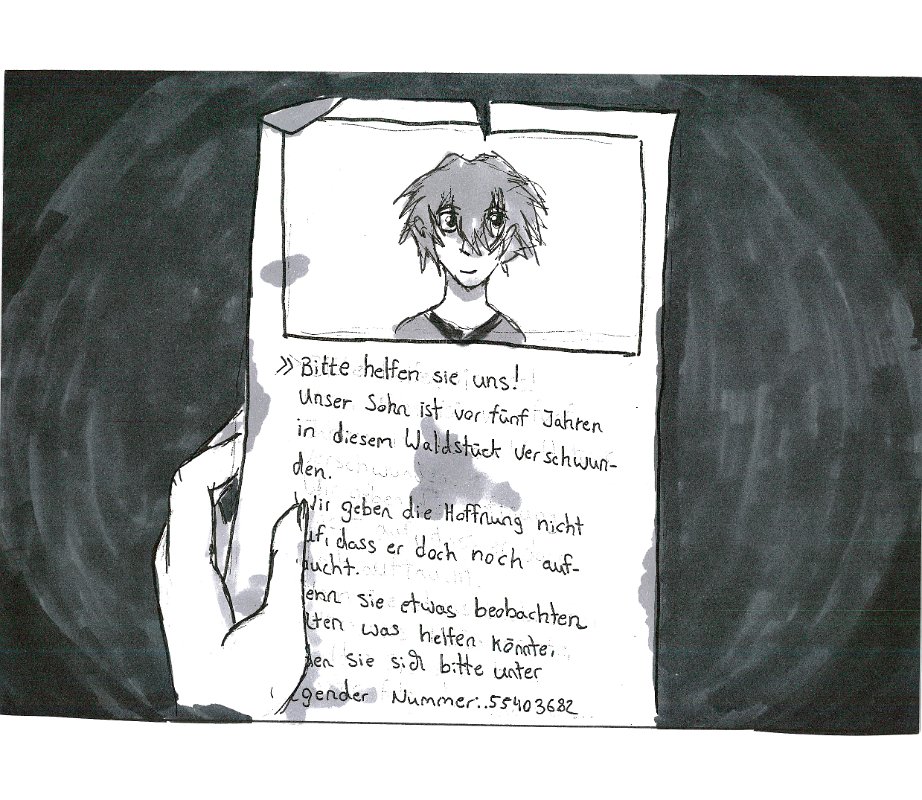 » Bitte helfen sie uns!
Unser Sohn ist vor fünf Jahren
in diesem Waldstück verschwun-
den.
Wir geben die Hoffnung nicht
uf, dass er doch noch auf-
aucht.
enn sie etwas beobachten
lten was helfen könnte,
den sie sich bitte unter
gender Nummer: 55403682